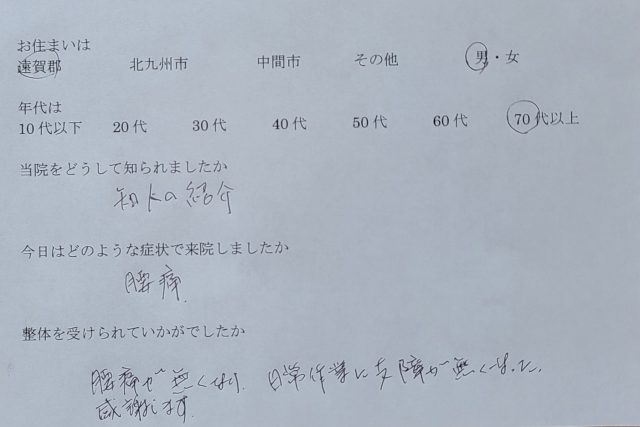 お住まいは
遠賀郡 北九州市 中間市 その他 男・女
年代は
10代以下 20代 30代 40代 50代 60代 70代以上
当院をどうして知られましたか
知人の紹介
今日はどのような症状で来院しましたか
腰痛
整体を受けられていかがでしたか
腰痛が無くなり 日常作業に支障が無くなった。
感謝します